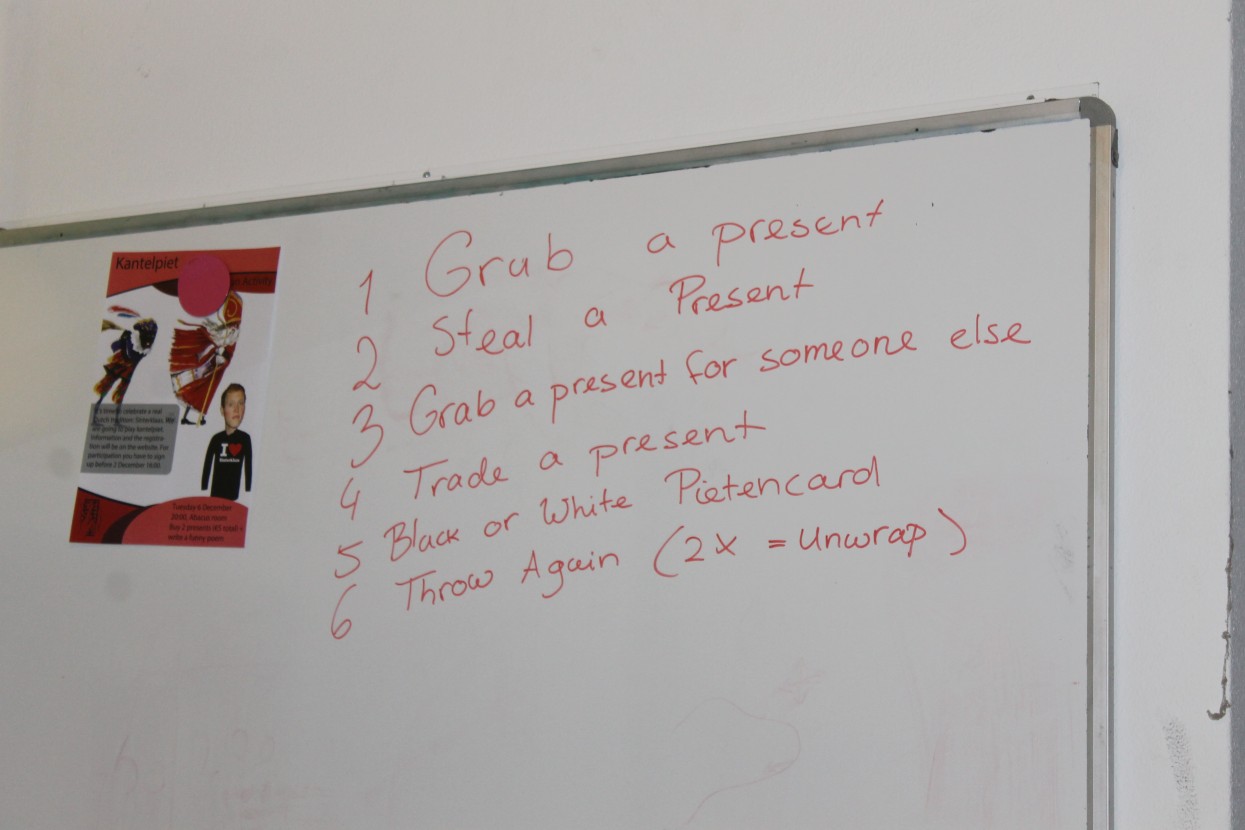 Kantelpiet
Activity
It's time to celebrate a real
are going to play kantelpiet.
Information and the registra-
tion will be on the website. For
participation you have to sign
up before 2 December 16:00.
I
Sinterklaas
Tuesday 6 December
20:00, Abacus room
Buy 2 presents (€5 total) +
write a funny poem
1 Grab a present
2 Steal a Present
3 Grab a present for someone else
4 Trade a present
5 Black or White Pietencard
6 Throw Again (2x = Unwrap)